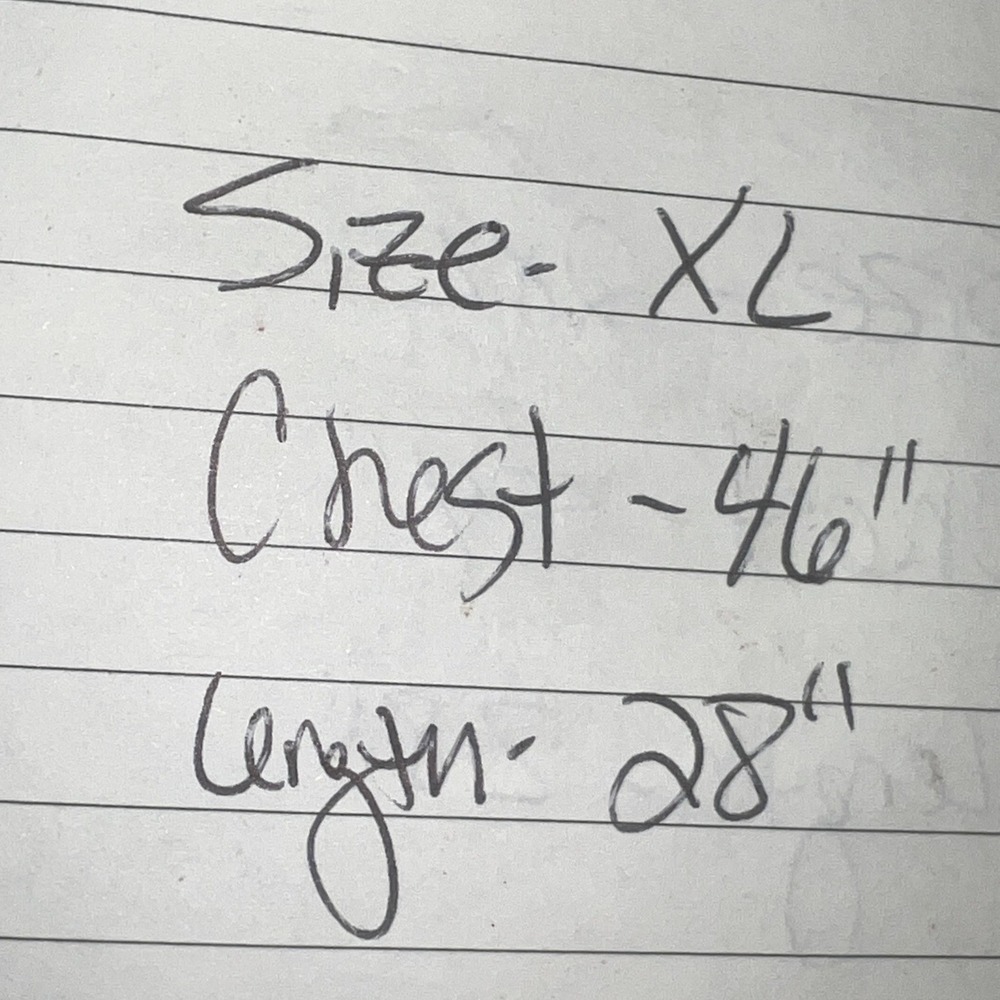 Size- XL
Chest - 46"
Length- 28"